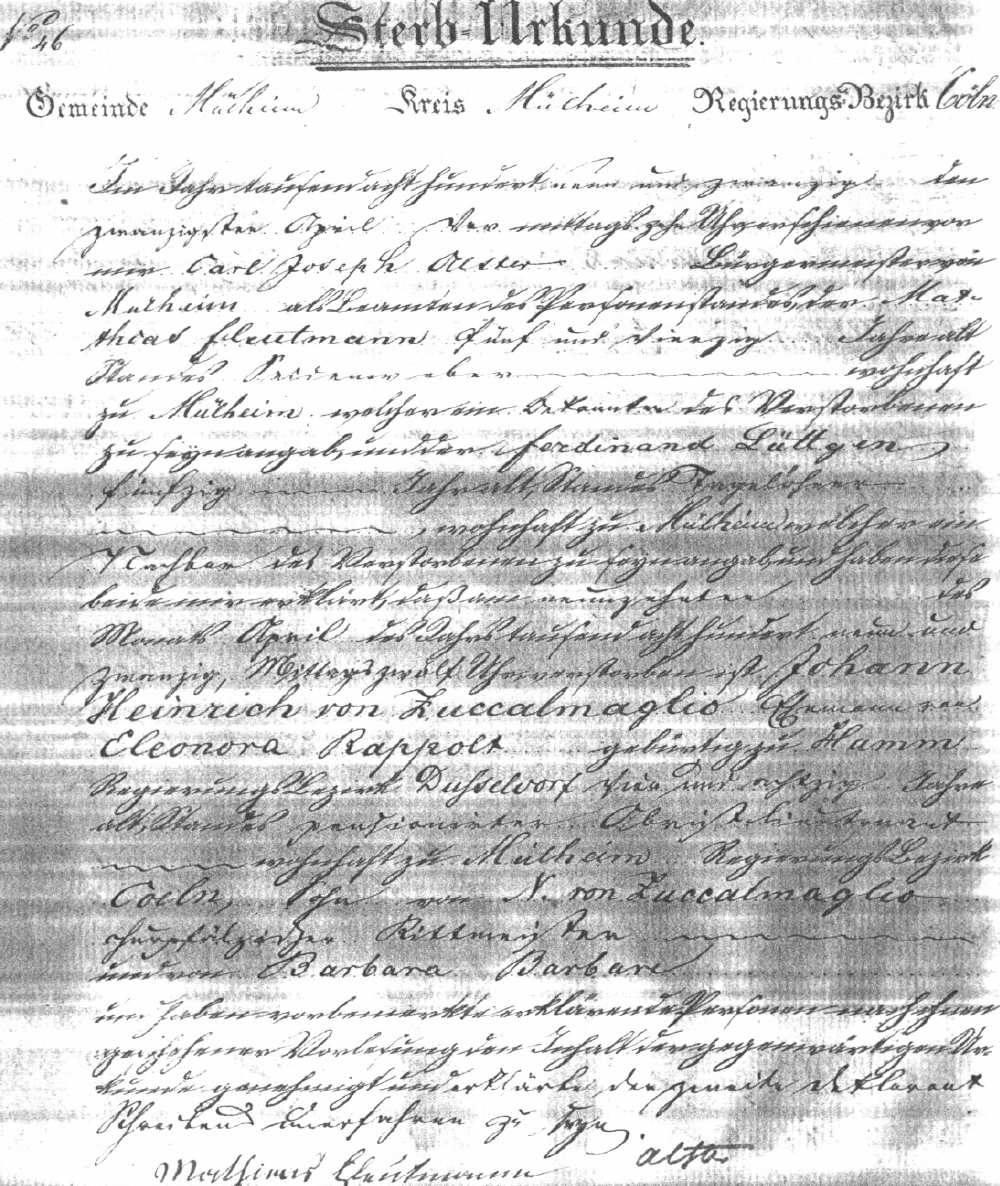 No 46
Sterb-Urkunde.
Gemeinde Mülheim Kreis Mülheim Regierungs-Bezirk Cöln
Im Jahr tausend acht hundert neun und zwanzig den
zwanzigsten April Vor mittags zehn Uhr erschienen vor
mir Carl Joseph Alster Bürgermeister von
Mülheim als Beamten des Personenstandes, der Mat-
thias Eleutmann Fünf und vierzig Jahre alt
Standes Seidenweber wohnhaft
zu Mülheim welcher ein Bekannter des Verstorbenen
zu seyn angab, und der Ferdinand Lüttgen
fünfzig Jahr alt, Standes Tagelöhner
, wohnhaft zu Mülheim welcher ein
Nachbar des Verstorbenen zu seyn angab und haben diese
beide mir erklärt, daß am neunzehnten des
Monats April des Jahrs tausend acht hundert neun und
zwanzig, Mittags zwölf Uhr verstorben ist Johann
Heinrich von Zuccalmaglio Ehemann von
Eleonora Rappolt gebürtig zu Hamm
Regierungs Bezirk Dusseldorf vier und achtzig Jahre
alt, Standes pensionirter Obristlieutenant
wohnhaft zu Mülheim Regierungs Bezirk
Coeln, Sohn von N. von Zuccalmaglio
churpfälzischer Rittmeister
und von Barbara Barbare
und haben vorbemerkte erklärende Personen nach ihnen
geschehener Vorlesung den Inhalt der gegenwärtigen Ur-
kunde genehmigt und erklärte der zweite declarant
Schreibens unerfahren zu seyn
Mathias Eleutmann alster